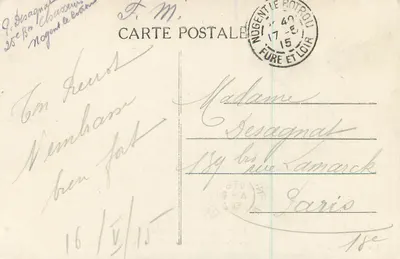 P. Desagnat
25e Bon Chasseurs
Nogent le Rotrou
F. M.
CARTE POSTALE
NOGENT-LE-ROTROU
17 -5
15
EURE ET LOIR
Ton Pierrot
t'embrasse
bien fort
16/V/15
Madame
Desagnat
189 bis rue Lamarck
Paris
18e